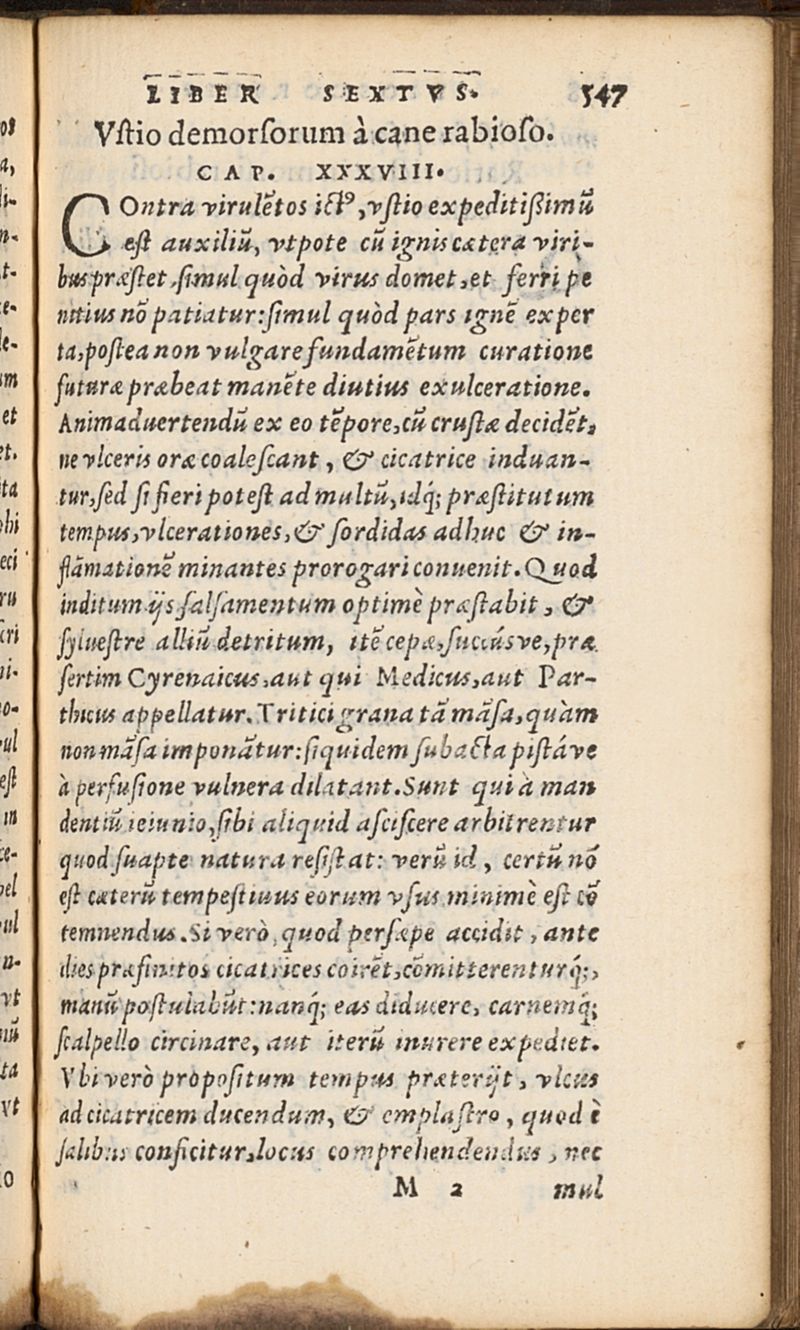 LIBER SEXTVS. 547
Vſtio demorſorum à cane rabioſo.
CAP. XXXVIII.
COntra virulẽtos ictꝰ, vſtio expeditißimũ
eſt auxiliũ, vtpote cũ ignis cætera viri-
bus præſtet, ſimul quòd virus domet, et ferri pe
nitius nõ patiatur: ſimul quòd pars ignẽ exper
ta, poſtea non vulgare fundamẽtum curatione
futuræ præbeat manẽte diutius exulceratione.
Animaduertendũ ex eo tẽpore, cũ cruſtæ decidẽt,
ne vlceris oræ coaleſcant, & cicatrice induan-
tur, ſed ſi fieri poteſt ad multũ, idq́; præſtitutum
tempus, vlcerationes, & ſordidas adhuc & in-
flãmationẽ minantes prorogari conuenit. Quod
inditum ijs ſalſamentum optimè præſtabit, &
ſylueſtre alliũ detritum, itẽ cepæ, ſuccúsve, præ
ſertim Cyrenaicus, aut qui Medicus, aut Par-
thicus appellatur. Tritici grana tã mãſa, quàm
non mãſa imponãtur: ſiquidem ſubacta piſtáve
à perfuſione vulnera dilatant. Sunt qui à man
dentiũ ieiunio, ſibi aliquid aſciſcere arbitrentur
quod ſuapte natura reſiſtat: verũ id, certũ nõ
eſt cæterũ tempeſtiuus eorum vſus minimè eſt cõ
temnendus. Si verò, quod perſæpe accidit, ante
dies præfinitos cicatrices coirẽt, cõmitterenturq́;,
manũ poſtulabũt: nanq́; eas diducere, carnemq́;
ſcalpello circinare, aut iterũ inurere expediet.
Vbi verò propoſitum tempus præterijt, vlcus
ad cicatricem ducendum, & emplaſtro, quod è
ſalibus conficitur, locus comprehendendus, nec
M 2 mul